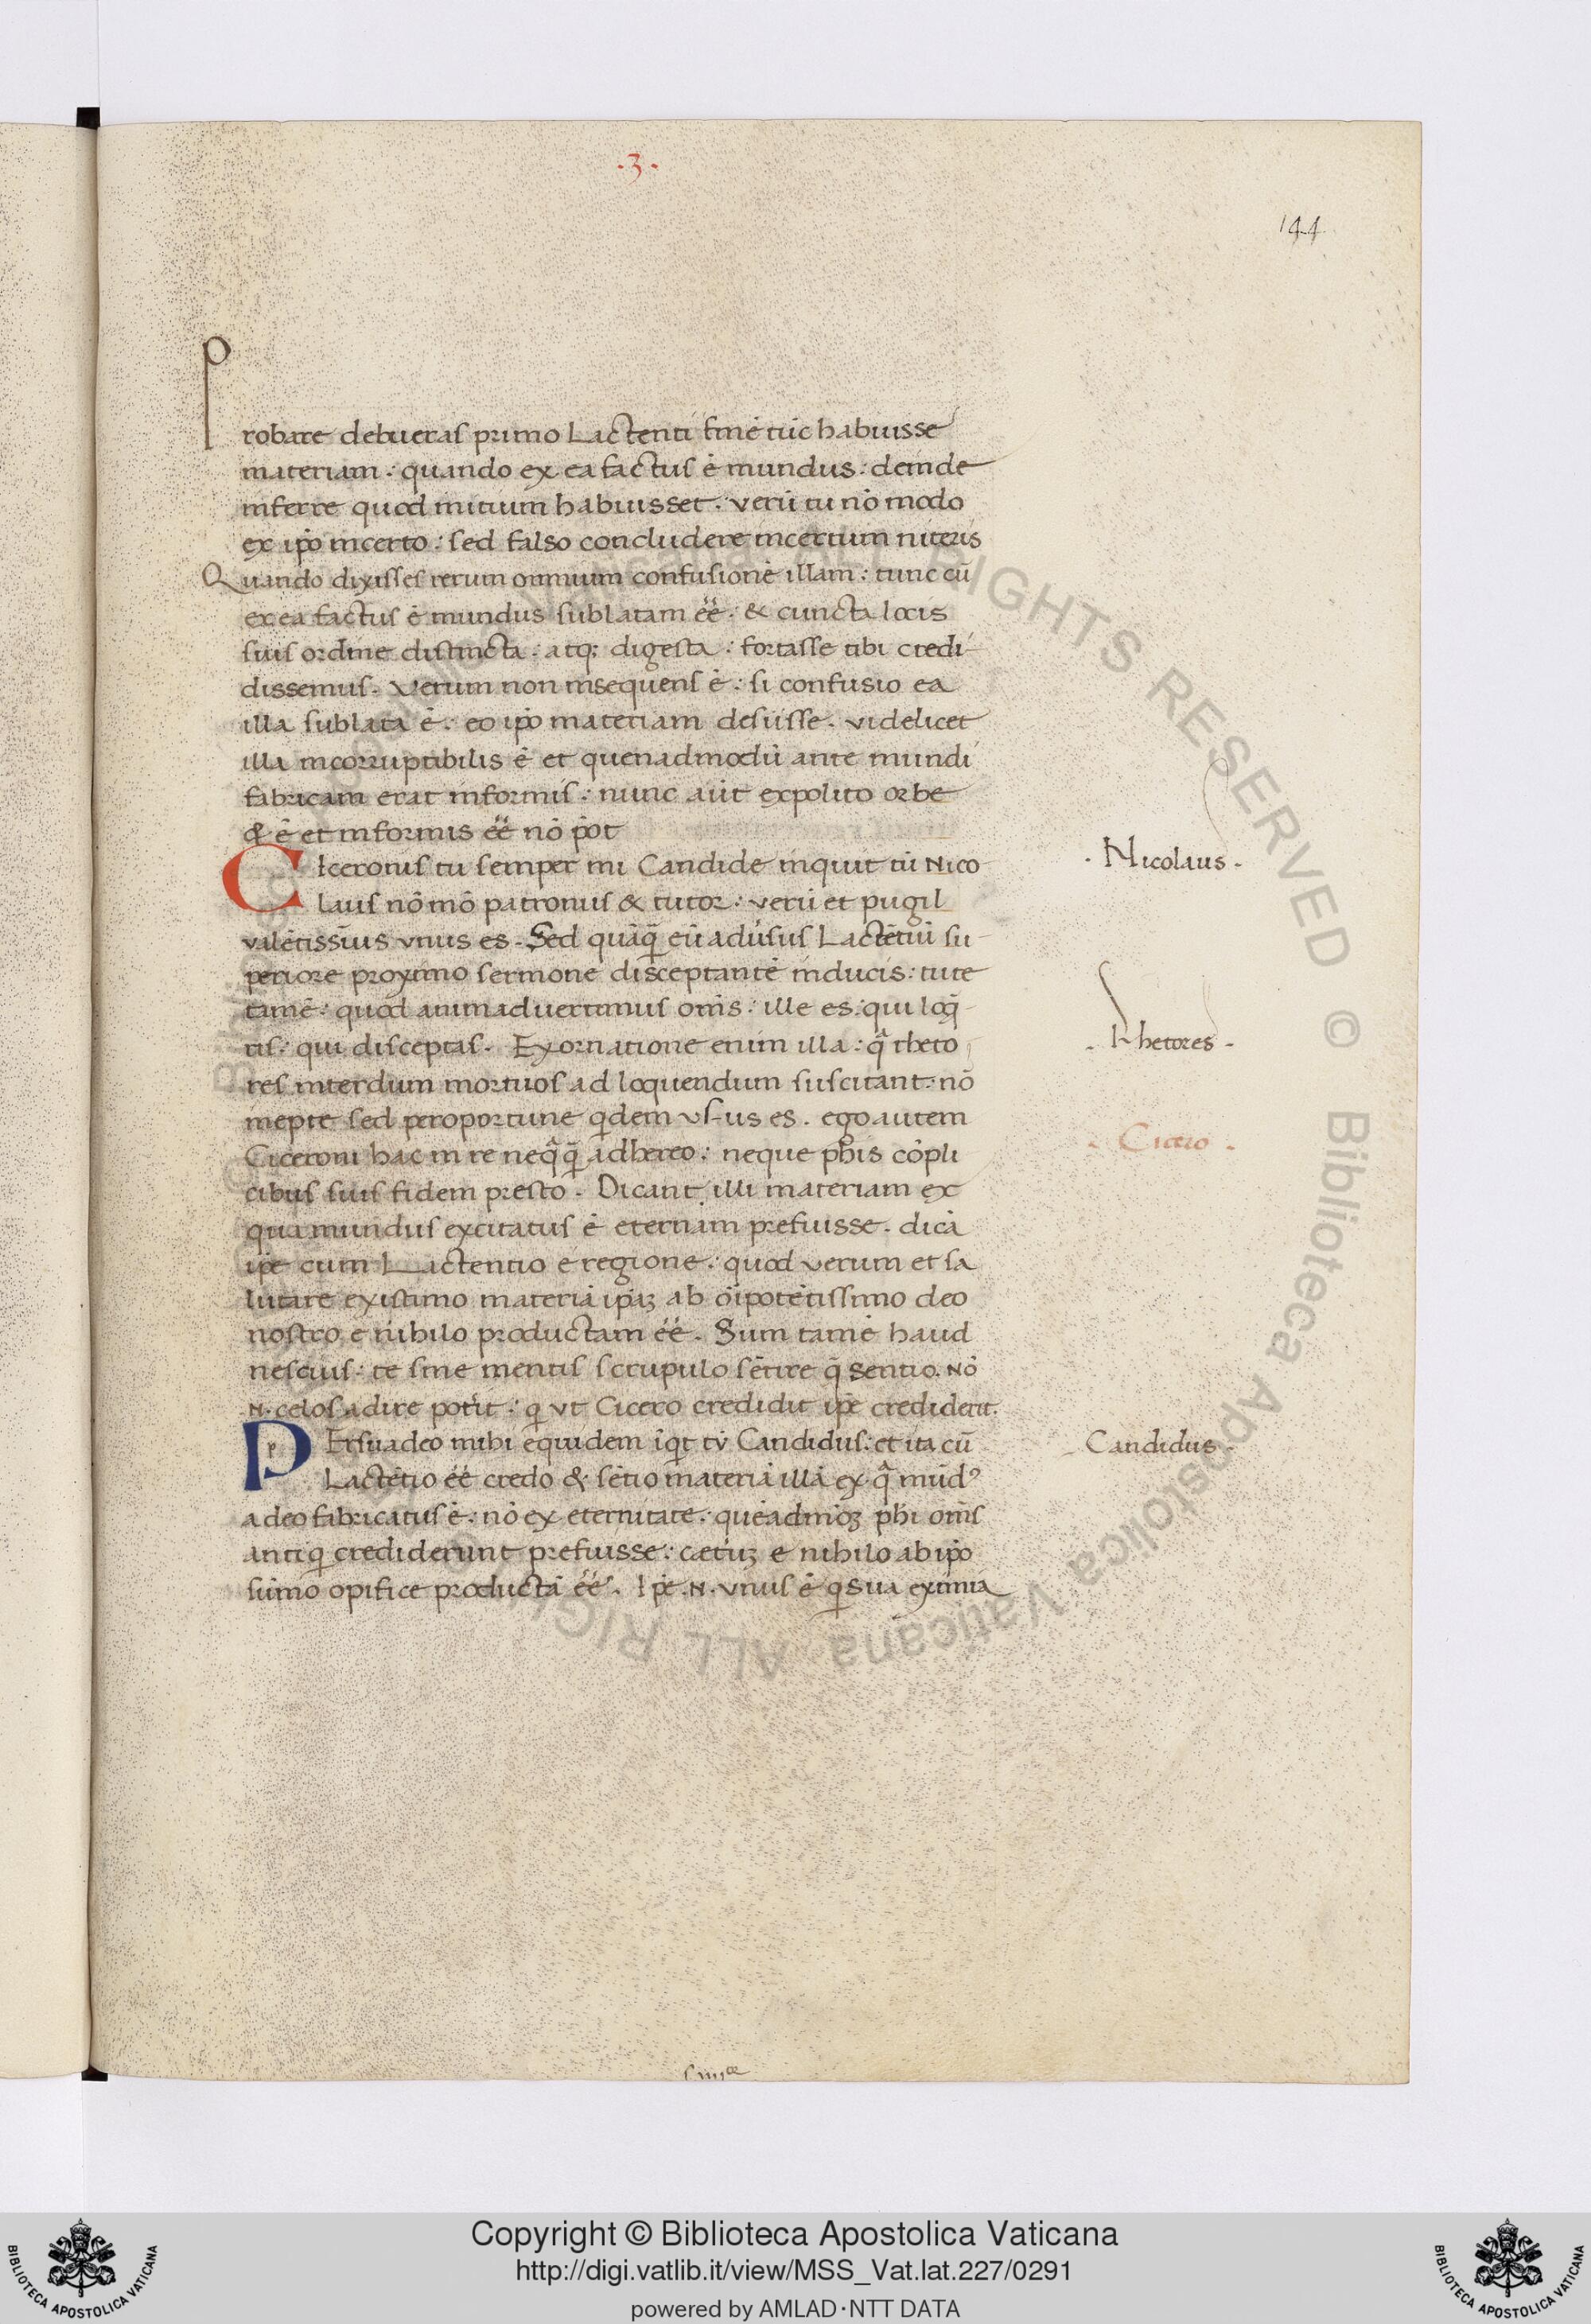 ·3·
144
Probare debueras primo Lactenti finē tūc habuisse
materiam: quando ex ea factus ē mundus: deinde
inferre quod initium habuisset. verū tu nō modo
ex ip̄o incerto: sed falso concludere incertum niteris
Quando dixisses rerum omnium confusionē illam: tunc cū
ex ea factus ē mundus sublatam eē̄: & cuncta locis
suis ordine distincta: atq; digesta: fortasse tibi credi-
dissemus. Verum non insequens ē: si confusio ea
illa sublata ē: eo ip̄o materiam desiisse. videlicet
illa incorruptibilis ē et quenadmodū ante mundi
fabricam erat informis: nunc aūt expolito orbe
& ē et informis eē̄ nō pōt
Ciceronis tu semper mi Candide inquit tū Nico-
laus nō mō patronus & tutor: verū et pugil
valētissīus vnus es. Sed quāq̄ eū adūsus Lactētiū su-
periore proximo sermone disceptantē inducis: tute
tamē: quod animaduertimus om̄s: ille es: qui loq̄-
ris: qui disceptas. Exornatione enim illa: q̄ rheto
res interdum mortuos ad loquendum suscitant: nō
inepte sed peroportune qdem vsus es. ego autem
Ciceroni hac in re neq̄q̄ adhereo: neque ph̄is cōpli
cibus suis fidem presto. Dicant illi materiam ex
qua mundus excitatus ē eternam prefuisse. dicā
ip̄e cum Lactentio e regione: quod verum et sa
lutare existimo materiā ip̄aʒ ab oīpotētissimo deo
nostro e nihilo productam eē̄. Sum tamē haud
nescius: te sine mentis scrupulo sētire q̄ sentio. Nō
.N. celos adire potīt: q vt Cicero credidit ip̄e crediderit.
PErsuadeo mihi equidem īqt tū Candidus: et ita cū
Lactētio eē̄ credo & sētio materiā illā ex q̄ mūdꝰ
a deo fabricatus ē: nō ex eternitate: quēadmōʒ ph̄i om̄s
antiq crediderunt prefuisse: cætūʒ e nihilo ab ip̄o
sūmo opifice productā eē̄. Ip̄e .N. vnus ē q sua eximia
· Nicolaus ·
· Rhetores ·
· Cicero ·
Candidus ·
Copyright © Biblioteca Apostolica Vaticana
http://digi.vatlib.it/view/MSS_Vat.lat.227/0291
powered by AMLAD·NTT DATA
BIBLIOTECA APOSTOLICA VATICANA
BIBLIOTECA APOSTOLICA VATICANA